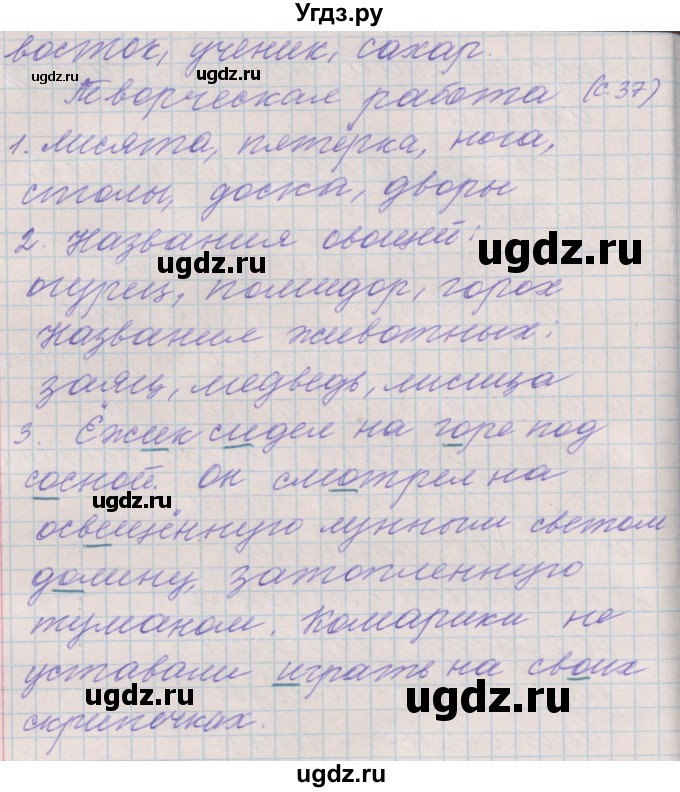 Угдз.ру
восток, ученик, сахар.
Творческая работа (с.37)
1. Лисята, пятёрка, нога,
столы, доска, дворы
2. Названия овощей:
огурец, помидор, горох
Названия животных:
заяц, медведь, лисица
3. Ёжик сидел на горе под
сосной. Он смотрел на
освещённую лунным светом
долину, затопленную
туманом. Комарики не
уставали играть на своих
скрипочках.
ugdz.ru
ugdz.ru
ugdz.ru
ugdz.ru
ugdz.ru
ugdz.ru
ugdz.ru
ugdz.ru
ugdz.ru
ugdz.ru